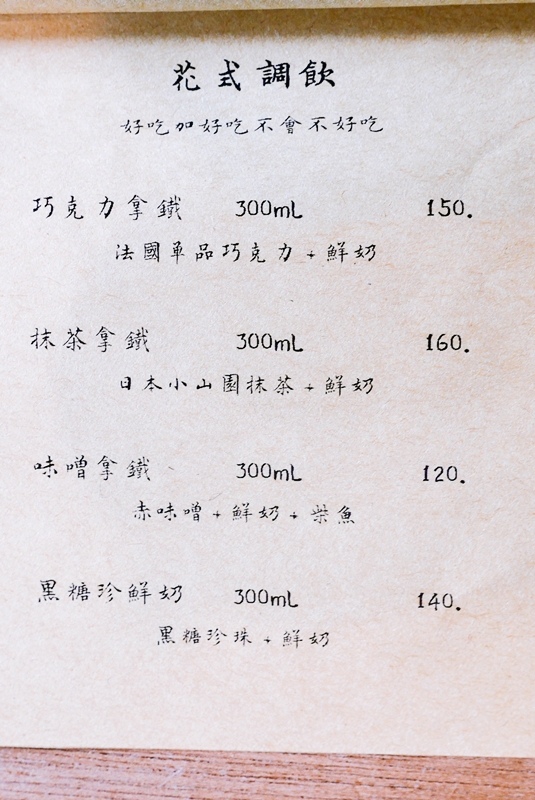 花式調飲
好吃加好吃不會不好吃
巧克力拿鐵 300mL 150.
法國單品巧克力+鮮奶
抹茶拿鐵 300mL 160.
日本小山園抹茶+鮮奶
味噌拿鐵 300mL 120.
赤味噌+鮮奶+柴魚
黑糖珍鮮奶 300mL 140.
黑糖珍珠+鮮奶